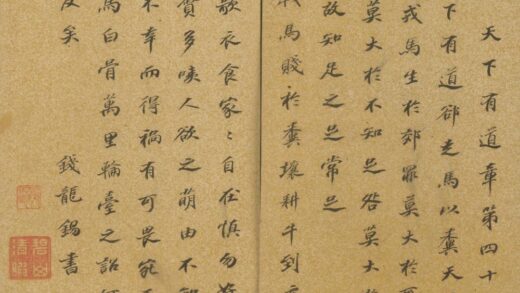 天下有道章第四十
下有道郤走馬以糞天
戎馬生於郊罪莫大於
莫大於不知足咎莫大於
故知足之足常足
馬賤於糞壤耕牛到
歌衣食家〻自在慎勿
質多人欲之萌由不
不幸而得禍有可畏
馬白骨萬里輪臺之詔
矣
錢龍錫書